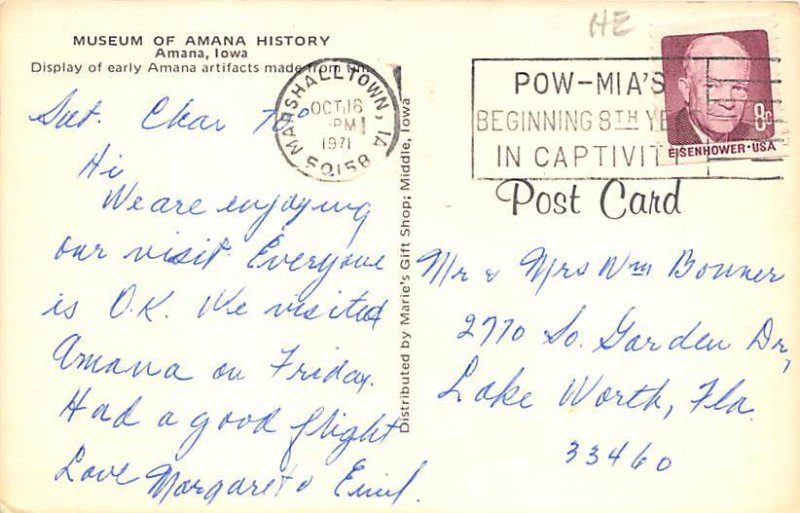 HE
MUSEUM OF AMANA HISTORY
Amana, Iowa
Display of early Amana artifacts made from tin.
MARSHALLTOWN, IA
OCT 16
PM
1971
50158
POW-MIA'S
BEGINNING 8TH YE
IN CAPTIVIT
8¢
EISENHOWER·USA
Post Card
Distributed by Marie's Gift Shop; Middle, Iowa
Sat.
Hi
We are enjoying
our visit. Everyone
is O.K. We visited
Amana on Friday.
Had a good flight
Love Margaret & Emil.
Mr & Mrs Wm Bonner
2770 So. Garden Dr,
Lake Worth, Fla.
33460